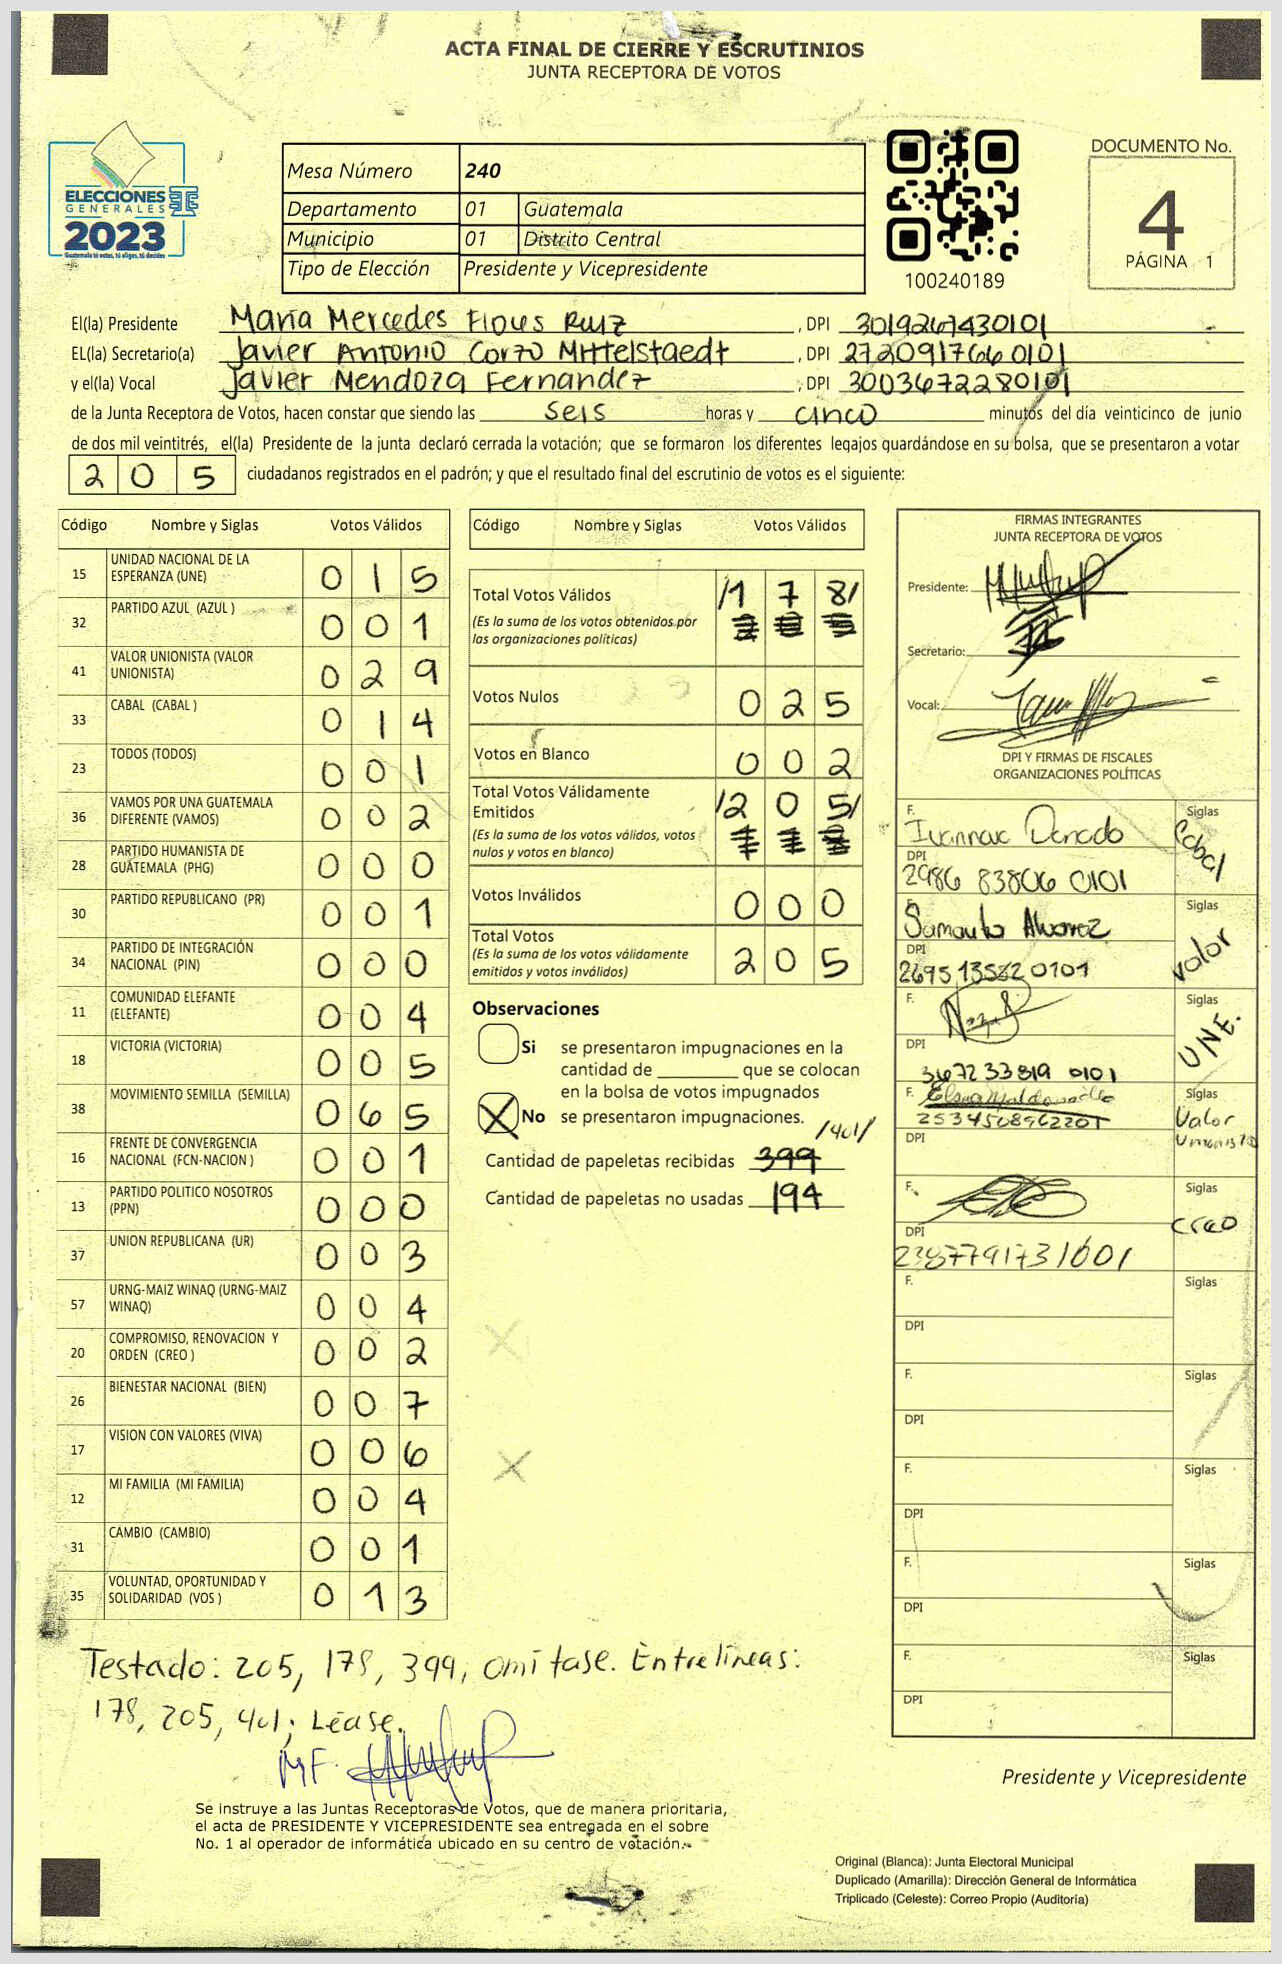 ACTA FINAL DE CIERRE Y ESCRUTINIOS
JUNTA RECEPTORA DE VOTOS
ELECCIONES
GENERALES
2023
Guatemala tú votas, tú eliges, tú decides
Mesa Número 240
Departamento 01 Guatemala
Municipio 01 Distrito Central
Tipo de Elección Presidente y Vicepresidente
100240189
DOCUMENTO No.
4
PÁGINA 1
El(la) Presidente María Mercedes Flores Ruiz, DPI 3019267430101
EL(la) Secretario(a) Javier Antonio Corzo Mittelstaedt, DPI 2720917660101
y el(la) Vocal Javier Mendoza Fernandez, DPI 3003672280101
de la Junta Receptora de Votos, hacen constar que siendo las seis horas y cinco minutos del día veinticinco de junio
de dos mil veintitrés, el(la) Presidente de la junta declaró cerrada la votación; que se formaron los diferentes legajos guardándose en su bolsa, que se presentaron a votar
205 ciudadanos registrados en el padrón; y que el resultado final del escrutinio de votos es el siguiente:
Código Nombre y Siglas Votos Válidos
15 UNIDAD NACIONAL DE LA ESPERANZA (UNE) 015
32 PARTIDO AZUL (AZUL ) 001
41 VALOR UNIONISTA (VALOR UNIONISTA) 029
33 CABAL (CABAL ) 014
23 TODOS (TODOS) 001
36 VAMOS POR UNA GUATEMALA DIFERENTE (VAMOS) 002
28 PARTIDO HUMANISTA DE GUATEMALA (PHG) 000
30 PARTIDO REPUBLICANO (PR) 001
34 PARTIDO DE INTEGRACIÓN NACIONAL (PIN) 000
11 COMUNIDAD ELEFANTE (ELEFANTE) 004
18 VICTORIA (VICTORIA) 005
38 MOVIMIENTO SEMILLA (SEMILLA) 065
16 FRENTE DE CONVERGENCIA NACIONAL (FCN-NACION ) 001
13 PARTIDO POLITICO NOSOTROS (PPN) 000
37 UNION REPUBLICANA (UR) 003
57 URNG-MAIZ WINAQ (URNG-MAIZ WINAQ) 004
20 COMPROMISO, RENOVACION Y ORDEN (CREO ) 002
26 BIENESTAR NACIONAL (BIEN) 007
17 VISION CON VALORES (VIVA) 006
12 MI FAMILIA (MI FAMILIA) 004
31 CAMBIO (CAMBIO) 001
35 VOLUNTAD, OPORTUNIDAD Y SOLIDARIDAD (VOS ) 013
Código Nombre y Siglas Votos Válidos
Total Votos Válidos /178/
(Es la suma de los votos obtenidos por
las organizaciones políticas)
Votos Nulos 025
Votos en Blanco 002
Total Votos Válidamente
Emitidos /205/
(Es la suma de los votos válidos, votos
nulos y votos en blanco)
Votos Inválidos 000
Total Votos
(Es la suma de los votos válidamente
emitidos y votos inválidos) 205
Observaciones
Si se presentaron impugnaciones en la
cantidad de ________ que se colocan
en la bolsa de votos impugnados
X No se presentaron impugnaciones.
/401/
Cantidad de papeletas recibidas 399
Cantidad de papeletas no usadas 194
FIRMAS INTEGRANTES
JUNTA RECEPTORA DE VOTOS
Presidente:
Secretario:
Vocal:
DPI Y FIRMAS DE FISCALES
ORGANIZACIONES POLÍTICAS
F. Donado Siglas Cabal
DPI 2986 83806 0101
F. Alvarez Siglas Valor
DPI 2695 13582 0101
F. Siglas UNE.
DPI 3672 33819 0101
F. Elena Maldonado Siglas Valor Unionista
2534508962201
DPI
F. Siglas Creo
DPI 2387791731001
F. Siglas
DPI
F. Siglas
DPI
F. Siglas
DPI
F. Siglas
DPI
F. Siglas
DPI
Testado: 205, 178, 399, omítase. Entrelíneas:
178, 205, 401; Léase.
MF.
Presidente y Vicepresidente
Se instruye a las Juntas Receptoras de Votos, que de manera prioritaria,
el acta de PRESIDENTE Y VICEPRESIDENTE sea entregada en el sobre
No. 1 al operador de informática ubicado en su centro de votación.
Original (Blanca): Junta Electoral Municipal
Duplicado (Amarilla): Dirección General de Informática
Triplicado (Celeste): Correo Propio (Auditoría)